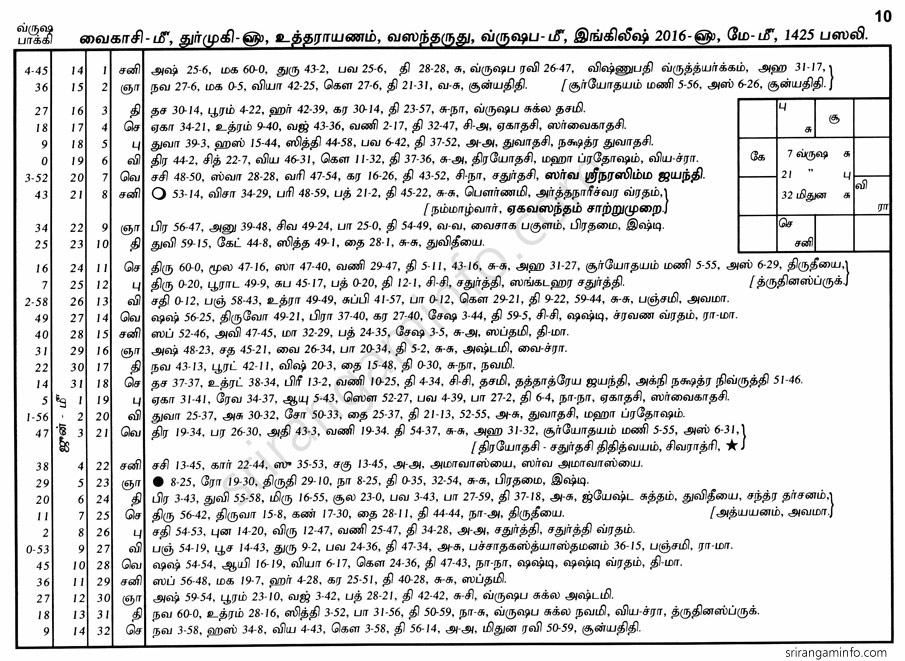 10
வ்ருஷ
பாக்கி
வைகாசி-மீ, துர்முகி-௵, உத்தராயணம், வஸந்தருது, வ்ருஷப-மீ, இங்கிலீஷ் 2016-௵, மே-மீ, 1425 பஸலி.
4-45 14 1 சனி அஷ் 25-6, மக 60-0, துரு 43-2, பவ 25-6, தி 28-28, சு, வ்ருஷப ரவி 26-47, விஷ்ணுபதி வ்ருத்த்யர்க்கம், அஹ 31-17,
36 15 2 ஞா நவ 27-6, மக 0-5, வியா 42-25, கௌ 27-6, தி 21-31, வ-சு, சூன்யதிதி. [சூர்யோதயம் மணி 5-56, அஸ் 6-26, சூன்யதிதி.]
27 16 3 தி தச 30-14, பூரம் 4-22, ஹர் 42-39, கர 30-14, தி 23-57, சு-நா, வ்ருஷப சுக்ல தசமி.
18 17 4 செ ஏகா 34-21, உத்ரம் 9-40, வஜ் 43-36, வணி 2-17, தி 32-47, சி-அ, ஏகாதசி, ஸர்வைகாதசி.
9 18 5 பு துவா 39-3, ஹஸ் 15-44, ஸித்தி 44-58, பவ 6-42, தி 37-52, அ-அ, துவாதசி, நக்ஷத்ர துவாதசி.
0 19 6 வி திர 44-2, சித் 22-7, விய 46-31, கௌ 11-32, தி 37-36, சு-அ, திரயோதசி, மஹா ப்ரதோஷம், விய-ச்ரா.
3-52 20 7 வெ சசி 48-50, ஸ்வா 28-28, வரி 47-54, கர 16-26, தி 43-52, சி-நா, சதுர்தசி, ஸர்வ ஸ்ரீநரஸிம்ம ஜயந்தி.
43 21 8 சனி 53-14, விசா 34-29, பரி 48-59, பத் 21-2, தி 45-22, சு-சு, பௌர்ணமி, அர்த்தநாரீச்வர வ்ரதம்,
[நம்மாழ்வார், ஏகவஸந்தம் சாற்றுமுறை.]
34 22 9 ஞா பிர 56-47, அனு 39-48, சிவ 49-24, பா 25-0, தி 54-49, வ-வ, வைசாக பகுளம், பிரதமை, இஷ்டி.
25 23 10 தி துவி 59-15, கேட் 44-8, ஸித்த 49-1, தை 28-1, சு-சு, துவிதீயை.
16 24 11 செ திரு 60-0, மூல 47-16, ஸா 47-40, வணி 29-47, தி 5-11, 43-16, சு-சு, அஹ 31-27, சூர்யோதயம் மணி 5-55, அஸ் 6-29, திருதீயை,
7 25 12 பு திரு 0-20, பூராட 49-9, சுப 45-17, பத் 0-20, தி 12-1, சி-சி, சதுர்த்தி, ஸங்கடஹர சதுர்த்தி. [த்ருதினஸ்ப்ருக்.]
2-58 26 13 வி சதி 0-12, பஞ் 58-43, உத்ரா 49-49, சுப்பி 41-57, பா 0-12, கௌ 29-21, தி 9-22, 59-44, சு-சு, பஞ்சமி, அவமா.
49 27 14 வெ ஷஷ் 56-25, திருவோ 49-21, பிரா 37-40, கர 27-40, சேஷ 3-44, தி 59-5, சி-சி, ஷஷ்டி, ச்ரவண வ்ரதம், ரா-மா.
40 28 15 சனி ஸப் 52-46, அவி 47-45, மா 32-29, பத் 24-35, சேஷ 3-5, சு-அ, ஸப்தமி, தி-மா.
31 29 16 ஞா அஷ் 48-23, சத 45-21, வை 26-34, பா 20-34, தி 5-2, சு-சு, அஷ்டமி, வை-ச்ரா.
22 30 17 தி நவ 43-13, பூரட் 42-11, விஷ் 20-3, தை 15-48, தி 0-30, சு-நா, நவமி.
14 31 18 செ தச 37-37, உத்ரட் 38-34, பிரீ 13-2, வணி 10-25, தி 4-34, சி-சி, தசமி, தத்தாத்ரேய ஜயந்தி, அக்நி நக்ஷத்ர நிவ்ருத்தி 51-46.
ஜூன்-மீ
5 1 19 பு ஏகா 31-41, ரேவ 34-37, ஆயு 5-43, ஸௌ 52-27, பவ 4-39, பா 27-2, தி 6-4, நா-நா, ஏகாதசி, ஸர்வைகாதசி.
1-56 2 20 வி துவா 25-37, அசு 30-32, சோ 50-33, தை 25-37, தி 21-13, 52-55, அ-சு, துவாதசி, மஹா ப்ரதோஷம்.
47 3 21 வெ திர 19-34, பர 26-30, அதி 43-3, வணி 19-34. தி 54-37, சு-சு, அஹ 31-32, சூர்யோதயம் மணி 5-55, அஸ் 6-31,
[திரயோதசி - சதுர்தசி திதித்வயம், சிவராத்ரி, ★]
38 4 22 சனி சசி 13-45, கார் 22-44, ஸு 35-53, சகு 13-45, அ-அ, அமாவாஸ்யை, ஸர்வ அமாவாஸ்யை.
29 5 23 ஞா ● 8-25, ரோ 19-30, திருதி 29-10, நா 8-25, தி 0-35, 32-54, சு-சு, பிரதமை, இஷ்டி.
20 6 24 தி பிர 3-43, துவி 55-58, மிரு 16-55, சூல 23-0, பவ 3-43, பா 27-59, தி 37-18, அ-சு, ஜ்யேஷ்ட சுத்தம், துவிதீயை, சந்த்ர தர்சனம்,
11 7 25 செ திரு 56-42, திருவா 15-8, கண் 17-30, தை 28-11, தி 44-44, நா-அ, திருதீயை. [அத்யயனம், அவமா.]
2 8 26 பு சதி 54-53, புன 14-20, விரு 12-47, வணி 25-47, தி 34-28, அ-அ, சதுர்த்தி, சதுர்த்தி வ்ரதம்.
0-53 9 27 வி பஞ் 54-19, பூச 14-43, துரு 9-2, பவ 24-36, தி 47-34, அ-சு, பச்சாதகஸ்த்யாஸ்தமனம் 36-15, பஞ்சமி, ரா-மா.
45 10 28 வெ ஷஷ் 54-54, ஆயி 16-19, வியா 6-17, கௌ 24-36, தி 47-43, நா-நா, ஷஷ்டி, ஷஷ்டி வ்ரதம், தி-மா.
36 11 29 சனி ஸப் 56-48, மக 19-7, ஹர் 4-28, கர 25-51, தி 40-28, சு-சு, ஸப்தமி.
27 12 30 ஞா அஷ் 59-54, பூரம் 23-10, வஜ் 3-42, பத் 28-21, தி 42-42, சு-சி, வ்ருஷப சுக்ல அஷ்டமி.
18 13 31 தி நவ 60-0, உத்ரம் 28-16, ஸித்தி 3-52, பா 31-56, தி 50-59, நா-சு, வ்ருஷப சுக்ல நவமி, விய-ச்ரா, த்ருதினஸ்ப்ருக்.
9 14 32 செ நவ 3-58, ஹஸ் 34-8, விய 4-43, கௌ 3-58, தி 56-14, அ-அ, மிதுன ரவி 50-59, சூன்யதிதி.
பு
சு
சூ
கே
7 வ்ருஷ சு
21 " பு
32 மிதுன சு
வி
ரா
செ
சனி
srirangaminfo.com
srirangaminfo.com